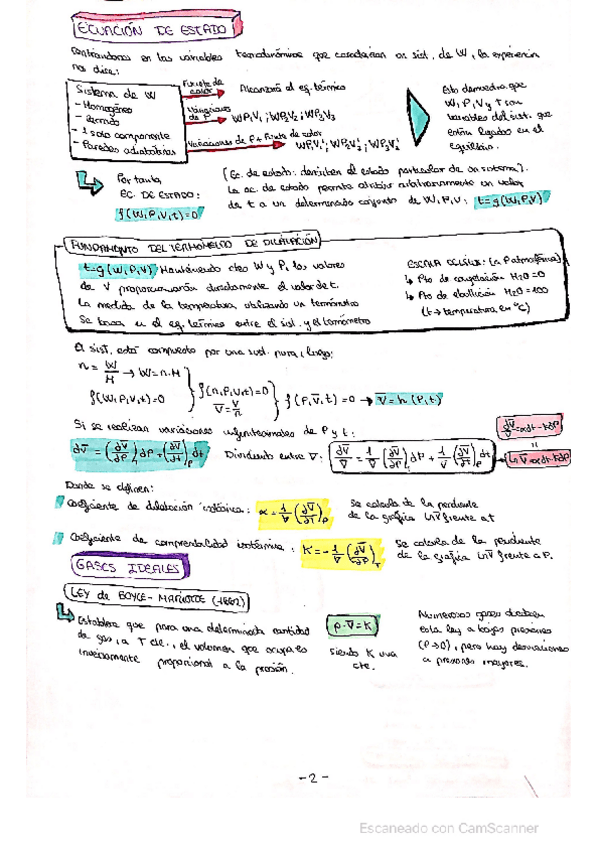 ECUACIÓN DE ESTADO
Centrándonos en las variables termodinámicas que caracterizan un sist. de W, la experiencia
nos dice:
Sistema de W
- Homogéneo
- Cerrado
- 1 solo componente
- Paredes adiabáticas
Fuente de calor
Alcanzará el eq. térmico
Variaciones de P
WP₁V₁; WP₂V₂; WP₃V₃
Variaciones de P + Fuente de calor
WP₁V₁'; WP₂V₂'; WP₃V₃'
Esto demuestra que
W, P, V y t son
variables del sist. que
están ligadas en el
equilibrio.
Por tanto,
EC. DE ESTADO:
f(W,P,V,t)=0
[Ec. de estado: describen el estado particular de un sistema].
La ec. de estado permite atribuir arbitrariamente un valor
de t a un determinado conjunto de W,P,V: t=g(W,P,V)
FUNDAMENTO DEL TERMÓMETRO DE DILATACIÓN
t=g(W,P,V) Manteniendo ctes W y P, los valores
de V proporcionarán directamente el valor de t.
La medida de la temperatura utilizando un termómetro
se basa en el eq. térmico entre el sist. y el termómetro
ESCALA CELSIUS: (a Patmosférica)
↳ Pto de congelación H₂O = 0
↳ Pto de ebullición H₂O = 100
(t → temperatura en °C)
El sist. está compuesto por una sust. pura, luego;
n = W/M → W = n·M
f(W,P,V,t)=0
f(n,P,V,t)=0
V̅ = V/n
f(P,V̅,t) = 0 → V̅ = h (P,t)
Si se realizan variaciones infinitesimales de P y t:
dV̅ = (∂V̅/∂P)ₜ dP + (∂V̅/∂t)ₚ dt
Dividendo entre V̅:
dV̅/V̅ = 1/V̅ (∂V̅/∂P)ₜ dP + 1/V̅ (∂V̅/∂t)ₚ dt
dV̅/V̅ = αdt - KdP
=
LnV̅ = αdt - KdP
Donde se definen:
Coeficiente de dilatación isobárica: α = 1/V̅ (∂V̅/∂T)ₚ
Se calcula de la pendiente
de la gráfica LnV̅ frente a t
Coeficiente de compresibilidad isotérmica: K = -1/V̅ (∂V̅/∂P)_T
Se calcula de la pendiente
de la gráfica LnV̅ frente a P.
GASES IDEALES
LEY de BOYLE - MARIOTTE (1662)
Establece que para una determinada cantidad
de gas, a T cte., el volumen que ocupa es
inversamente proporcional a la presión.
P·V̅ = K
siendo K una
cte.
Numerosos gases obedecen
esta ley a bajas presiones
(P→0), pero hay desviaciones
a presiones mayores.
- 2 -
Escaneado con CamScanner